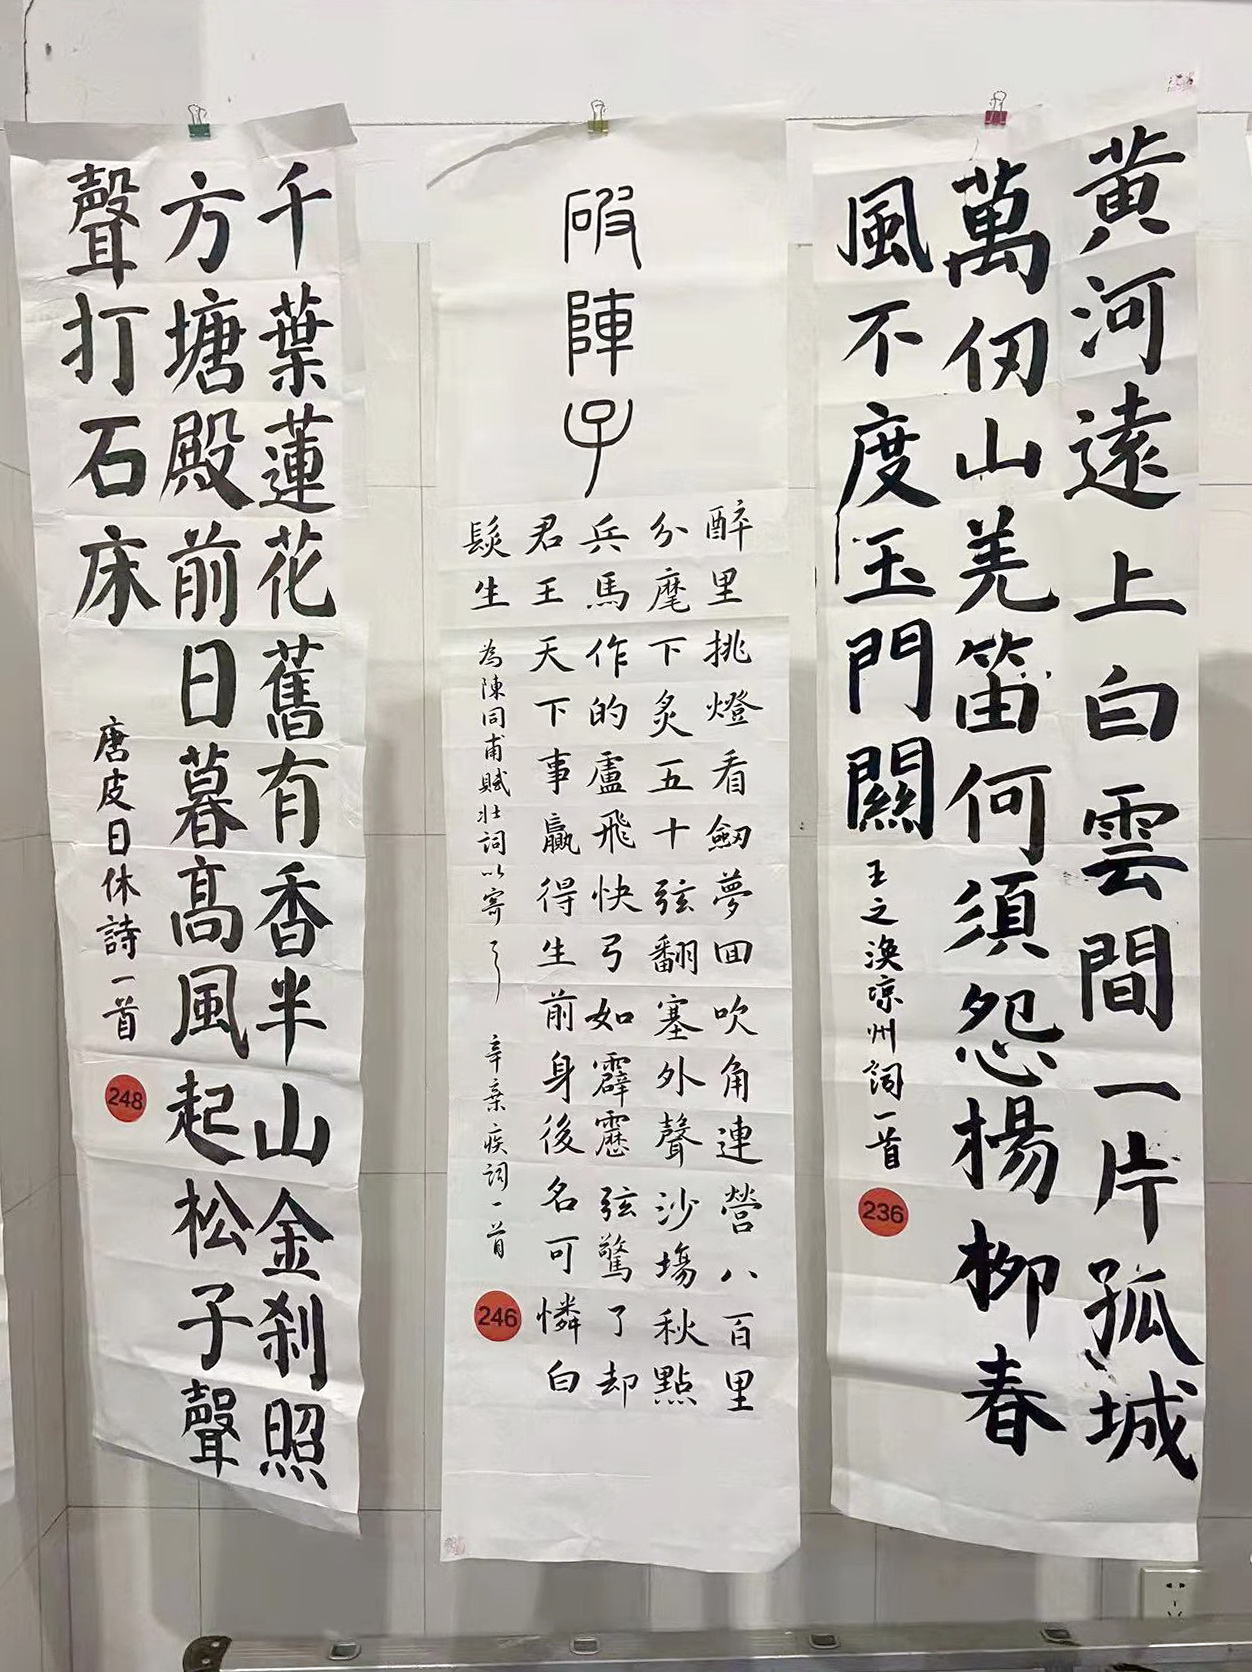 黄河遠上白雲間一片孤城
萬仞山羌笛何須怨楊柳春
風不度玉門關
王之渙凉州詞一首
236
破陣子
醉里挑燈看劍夢回吹角連營八百里
分麾下炙五十弦翻塞外聲沙場秋點
兵馬作的盧飛快弓如霹靂弦驚了却
君王天下事贏得生前身後名可憐白
髮生
為陳同甫賦壯詞以寄之
辛棄疾詞一首
246
千葉蓮花舊有香半山金刹照
方塘殿前日暮高風起松子聲
聲打石床
唐皮日休詩一首
248